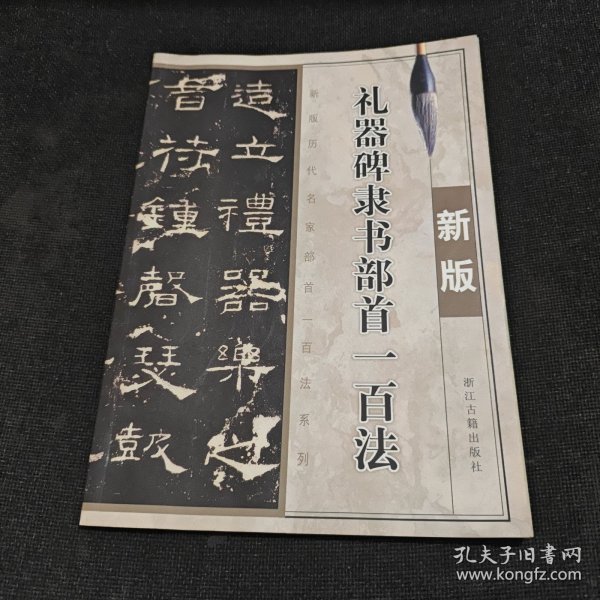 礼器碑隶书部首一百法
新版
新版历代名家部首一百法系列
浙江古籍出版社
造立禮器樂之
音符鍾磬瑟鼓
孔夫子旧书网
www.kongfz.com